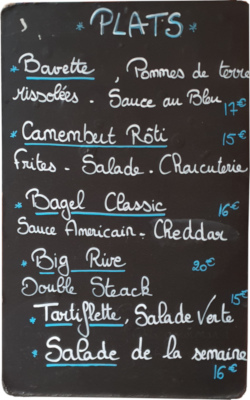 * PLATS *
* Bavette, Pommes de terre
rissolées - Sauce au Bleu 17€
* Camembert Rôti 15€
Frites - Salade - Charcuterie
* Bagel Classic 16€
Sauce Americain - Cheddar
* Big Rive 20€
Double Steack
* Tartiflette, Salade Verte 15€
* Salade de la semaine
16€